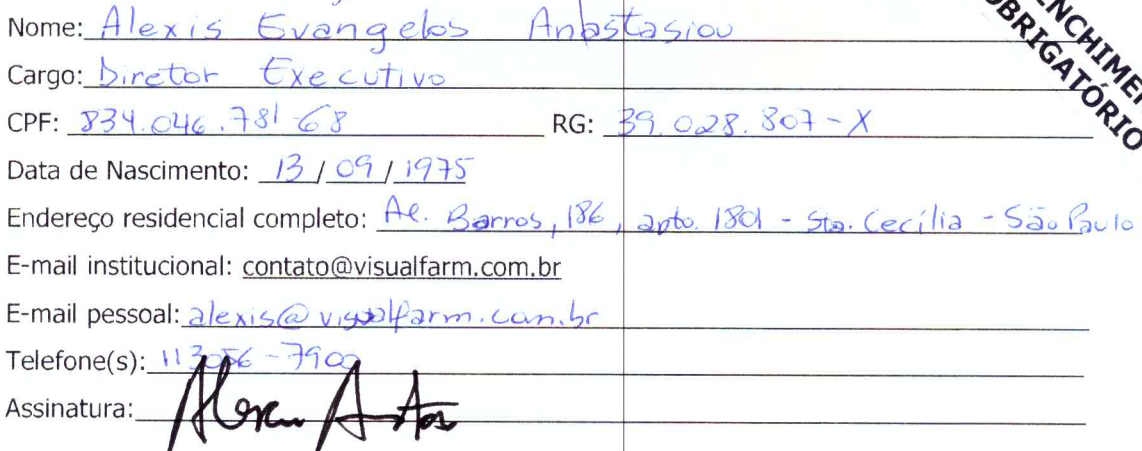 Nome: Alexis Evangelos Anastasiou
Cargo: Diretor Executivo
CPF: 834.046.781-68 RG: 39.028.807-X
Data de Nascimento: 13/09/1975
Endereço residencial completo: Al. Barros, 186, apto. 1801 - Sta. Cecília - São Paulo
E-mail institucional: contato@visualfarm.com.br
E-mail pessoal: alexis@visualfarm.com.br
Telefone(s): 11 3056-7900
Assinatura:
OBRIGATÓRIO